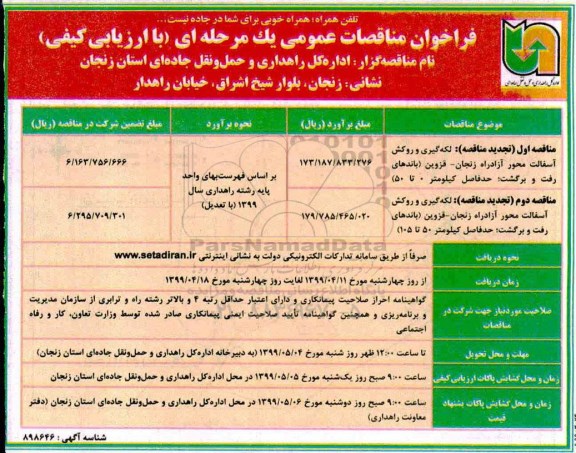 تلفن همراه: همراه خوبی برای شما در جاده نیست...
فراخوان مناقصات عمومی یك مرحله ای (با ارزیابی کیفی)
نام مناقصه‌گزار: اداره‌کل راهداری و حمل‌ونقل جاده‌ای استان زنجان
نشانی: زنجان، بلوار شیخ اشراق، خیابان راهدار
موضوع مناقصات
مبلغ برآورد (ریال)
نحوه برآورد
مبلغ تضمین شرکت در مناقصه (ریال)
مناقصه اول (تجدید مناقصه): لکه‌گیری و روکش
آسفالت محور آزادراه زنجان- قزوین (باندهای
رفت و برگشت؛ حدفاصل کیلومتر ۰ تا ۵۰)
۱۷۳/۱۸۷/۸۳۳/۲۷۶
بر اساس فهرست‌بهای واحد
پایه رشته راهداری سال
۱۳۹۹ (با تعدیل)
۶/۱۶۳/۷۵۶/۶۶۶
مناقصه دوم (تجدید مناقصه): لکه‌گیری و روکش
آسفالت محور آزادراه زنجان-قزوین (باندهای
رفت و برگشت؛ حدفاصل کیلومتر ۵۰ تا ۱۰۵)
۱۷۹/۷۸۵/۴۶۵/۰۲۰
۶/۲۹۵/۷۰۹/۳۰۱
ParsNamadData
نحوه دریافت
صرفاً از طریق سامانه تدارکات الکترونیکی دولت به نشانی اینترنتی www.setadiran.ir
زمان دریافت
از روز چهارشنبه مورخ ۱۳۹۹/۰۴/۱۱ لغایت روز چهارشنبه مورخ ۱۳۹۹/۰۴/۱۸
صلاحیت موردنیاز جهت شرکت در
مناقصات
گواهینامه احراز صلاحیت پیمانکاری و دارای اعتبار حداقل رتبه ۴ و بالاتر رشته راه و ترابری از سازمان مدیریت
و برنامه‌ریزی و همچنین گواهینامه تأیید صلاحیت ایمنی پیمانکاری صادر شده توسط وزارت تعاون، کار و رفاه
اجتماعی
مهلت و محل تحویل
تا ساعت ۱۲:۰۰ ظهر روز شنبه مورخ ۱۳۹۹/۰۵/۰۴ (به دبیرخانه اداره‌کل راهداری و حمل‌ونقل جاده‌ای استان زنجان)
زمان و محل گشایش پاکات ارزیابی کیفی
ساعت ۹:۰۰ صبح روز یک‌شنبه مورخ ۱۳۹۹/۰۵/۰۵ در محل اداره‌کل راهداری و حمل‌ونقل جاده‌ای استان زنجان
زمان و محل گشایش پاکات پیشنهاد
قیمت
ساعت ۹:۰۰ صبح روز دوشنبه مورخ ۱۳۹۹/۰۵/۰۶ در محل اداره‌کل راهداری و حمل‌ونقل جاده‌ای استان زنجان (دفتر
معاونت راهداری)
شناسه آگهی: ۸۹۸۶۴۶